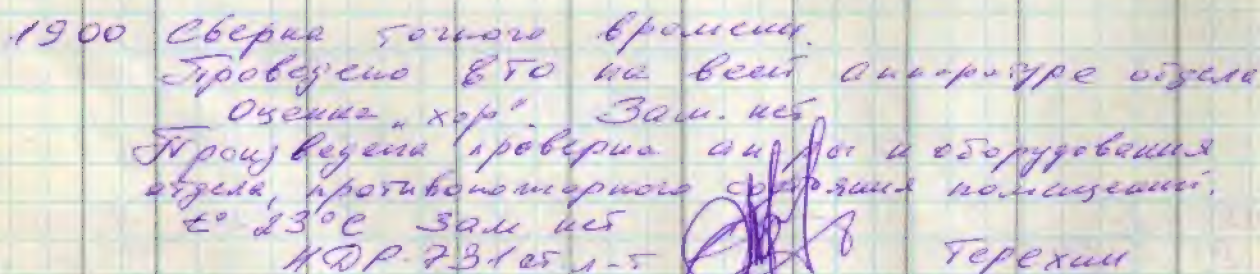 1900 Сверка точного времени.
Проведено ЕТО на всей аппаратуре отдела
Оценка „хор". Зам. нет
Произведена проверка ап-ры и оборудования
отдела, противопожарного состояния помещений.
t° 23°С Зам нет
НДР-731 ст л-т Терехин